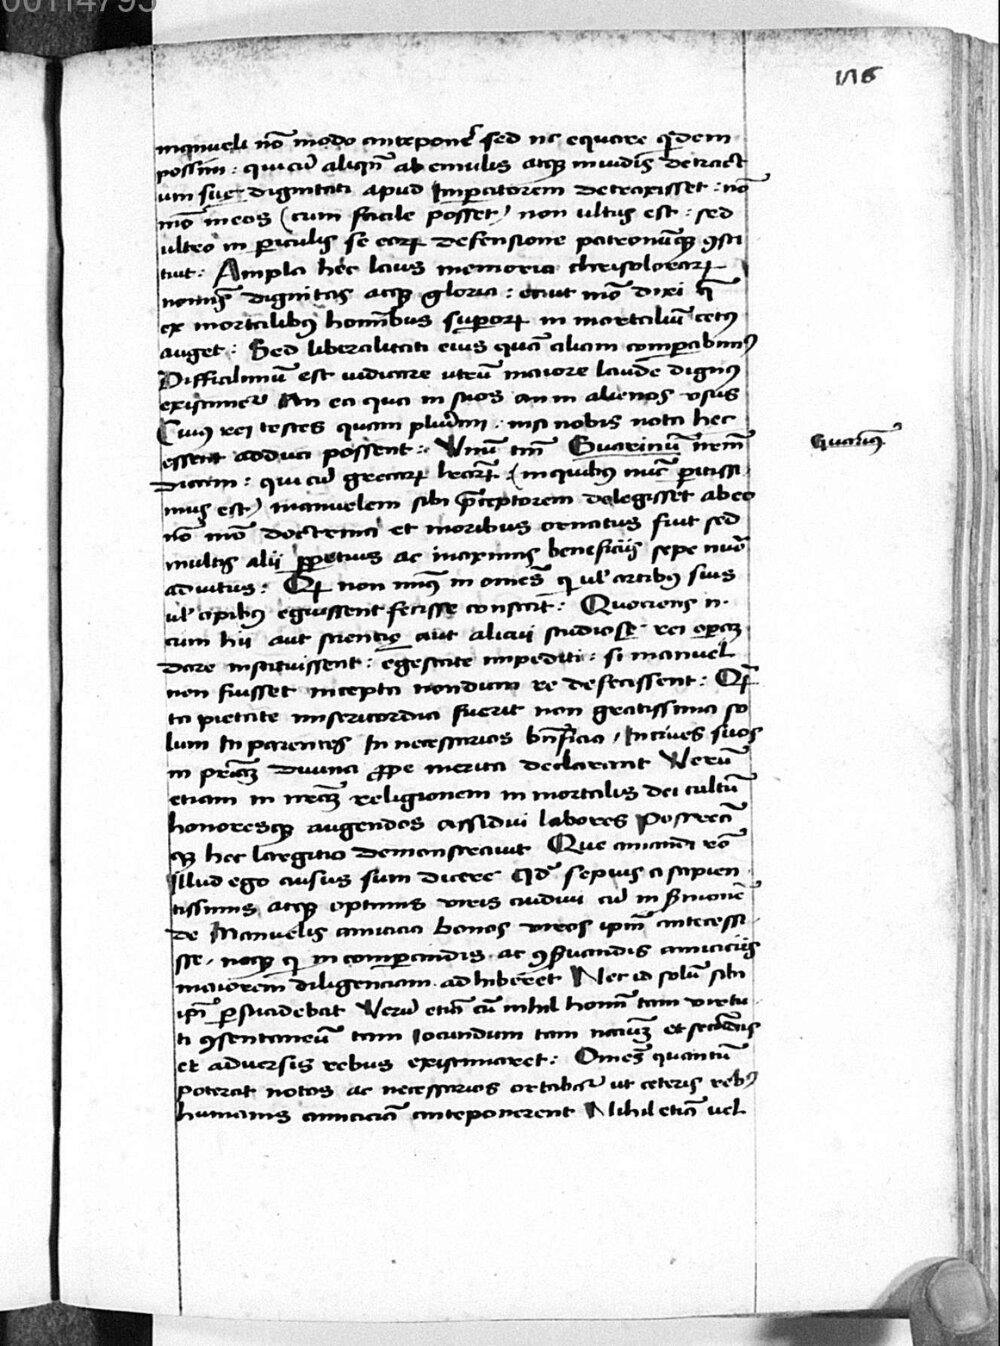 00114795
176
manueli nō modo anteponeͬ sed nc equare qͥdem
possim : qui cū aliqn̄ ab emulis atqꝫ inuidis detract
um sue dignitati apud Imperatorem detraxisset : nō
mō in eos (cum facile posset) non ultus est : sed
ultro in ꝑiculis se eoꝝ defensione patronumqꝫ ꝯsti
tuit : Ampla hec laus memoria chrisoloraꝝ
nominis dignitas atqꝫ gloria : et ut mō dixi q̄
ex mortalibꝰ hominibus supoꝝ in mortaliū cetꝰ
auget : Sed liberalitati eius quā aliam comparabimꝰ
Difficilimū est iudicare utrū maiore laude dignꝰ
existimer An ea qua in suos an in alienos usus
Cuiꝰ rei testes quam plurimi : nisi nobis nota hec
essent adduci possent : Unū tm̄ Guarinū nrm̄
Guarinꝰ
dicam : qui cū grecaꝝ lrarꝝ : (in quibus nūc ꝑitissi
mus est) manuelem sibi p̄ceptorem delegisset ab eo
nō mō doctrina et moribus ornatus fuit sed
multis alii ꝑpetuis ac maximis beneficiis sepe
adiutus : Qꝫ non minꝰ in omēs qui ul' artibꝰ suis
ul' opibꝰ eguissent fecisse constat : Quociens n.
cum hii aut scientie aut alicui studiose rei operam
dare instituissent : egestate impediti : si manuel
non fuisset incepta nondum re defecissent :
ta pietate misericordia fuerit non gratissima so
lum In parentes In necessarios bn̄ficia , In ciues suos
in priam̄ diuina ꝓpe merita declarant Verū
etiam in nram̄ religionem in mortalis dei cultū
honoresqꝫ augendos assidui labores
qꝫ hec largitio demonstrauit Que
Illud ego ausus sum dicere qd̄ sepius a sapien
tissimis atqꝫ optimis uiris audiui cū in sermone
de Manuelis amicicia bonos uiros ipm̄ antecessi
sse , neqꝫ qui in comparandis ac ꝯseruandis amiciciis
maiorem diligenciam adhiberet Nec id solū sibi
ipī ꝑsuadebat Verū etiā cū nihil homī tam uirtu
ti ꝯsentaneū tam Iocundum tam et secundis
et aduersis rebus existimaret : Omēs quantū
poterat notos ac necessarios ortabaͬ ut ceteris rebꝰ
humanis amiciciā anteponerent Nihil etiā uel